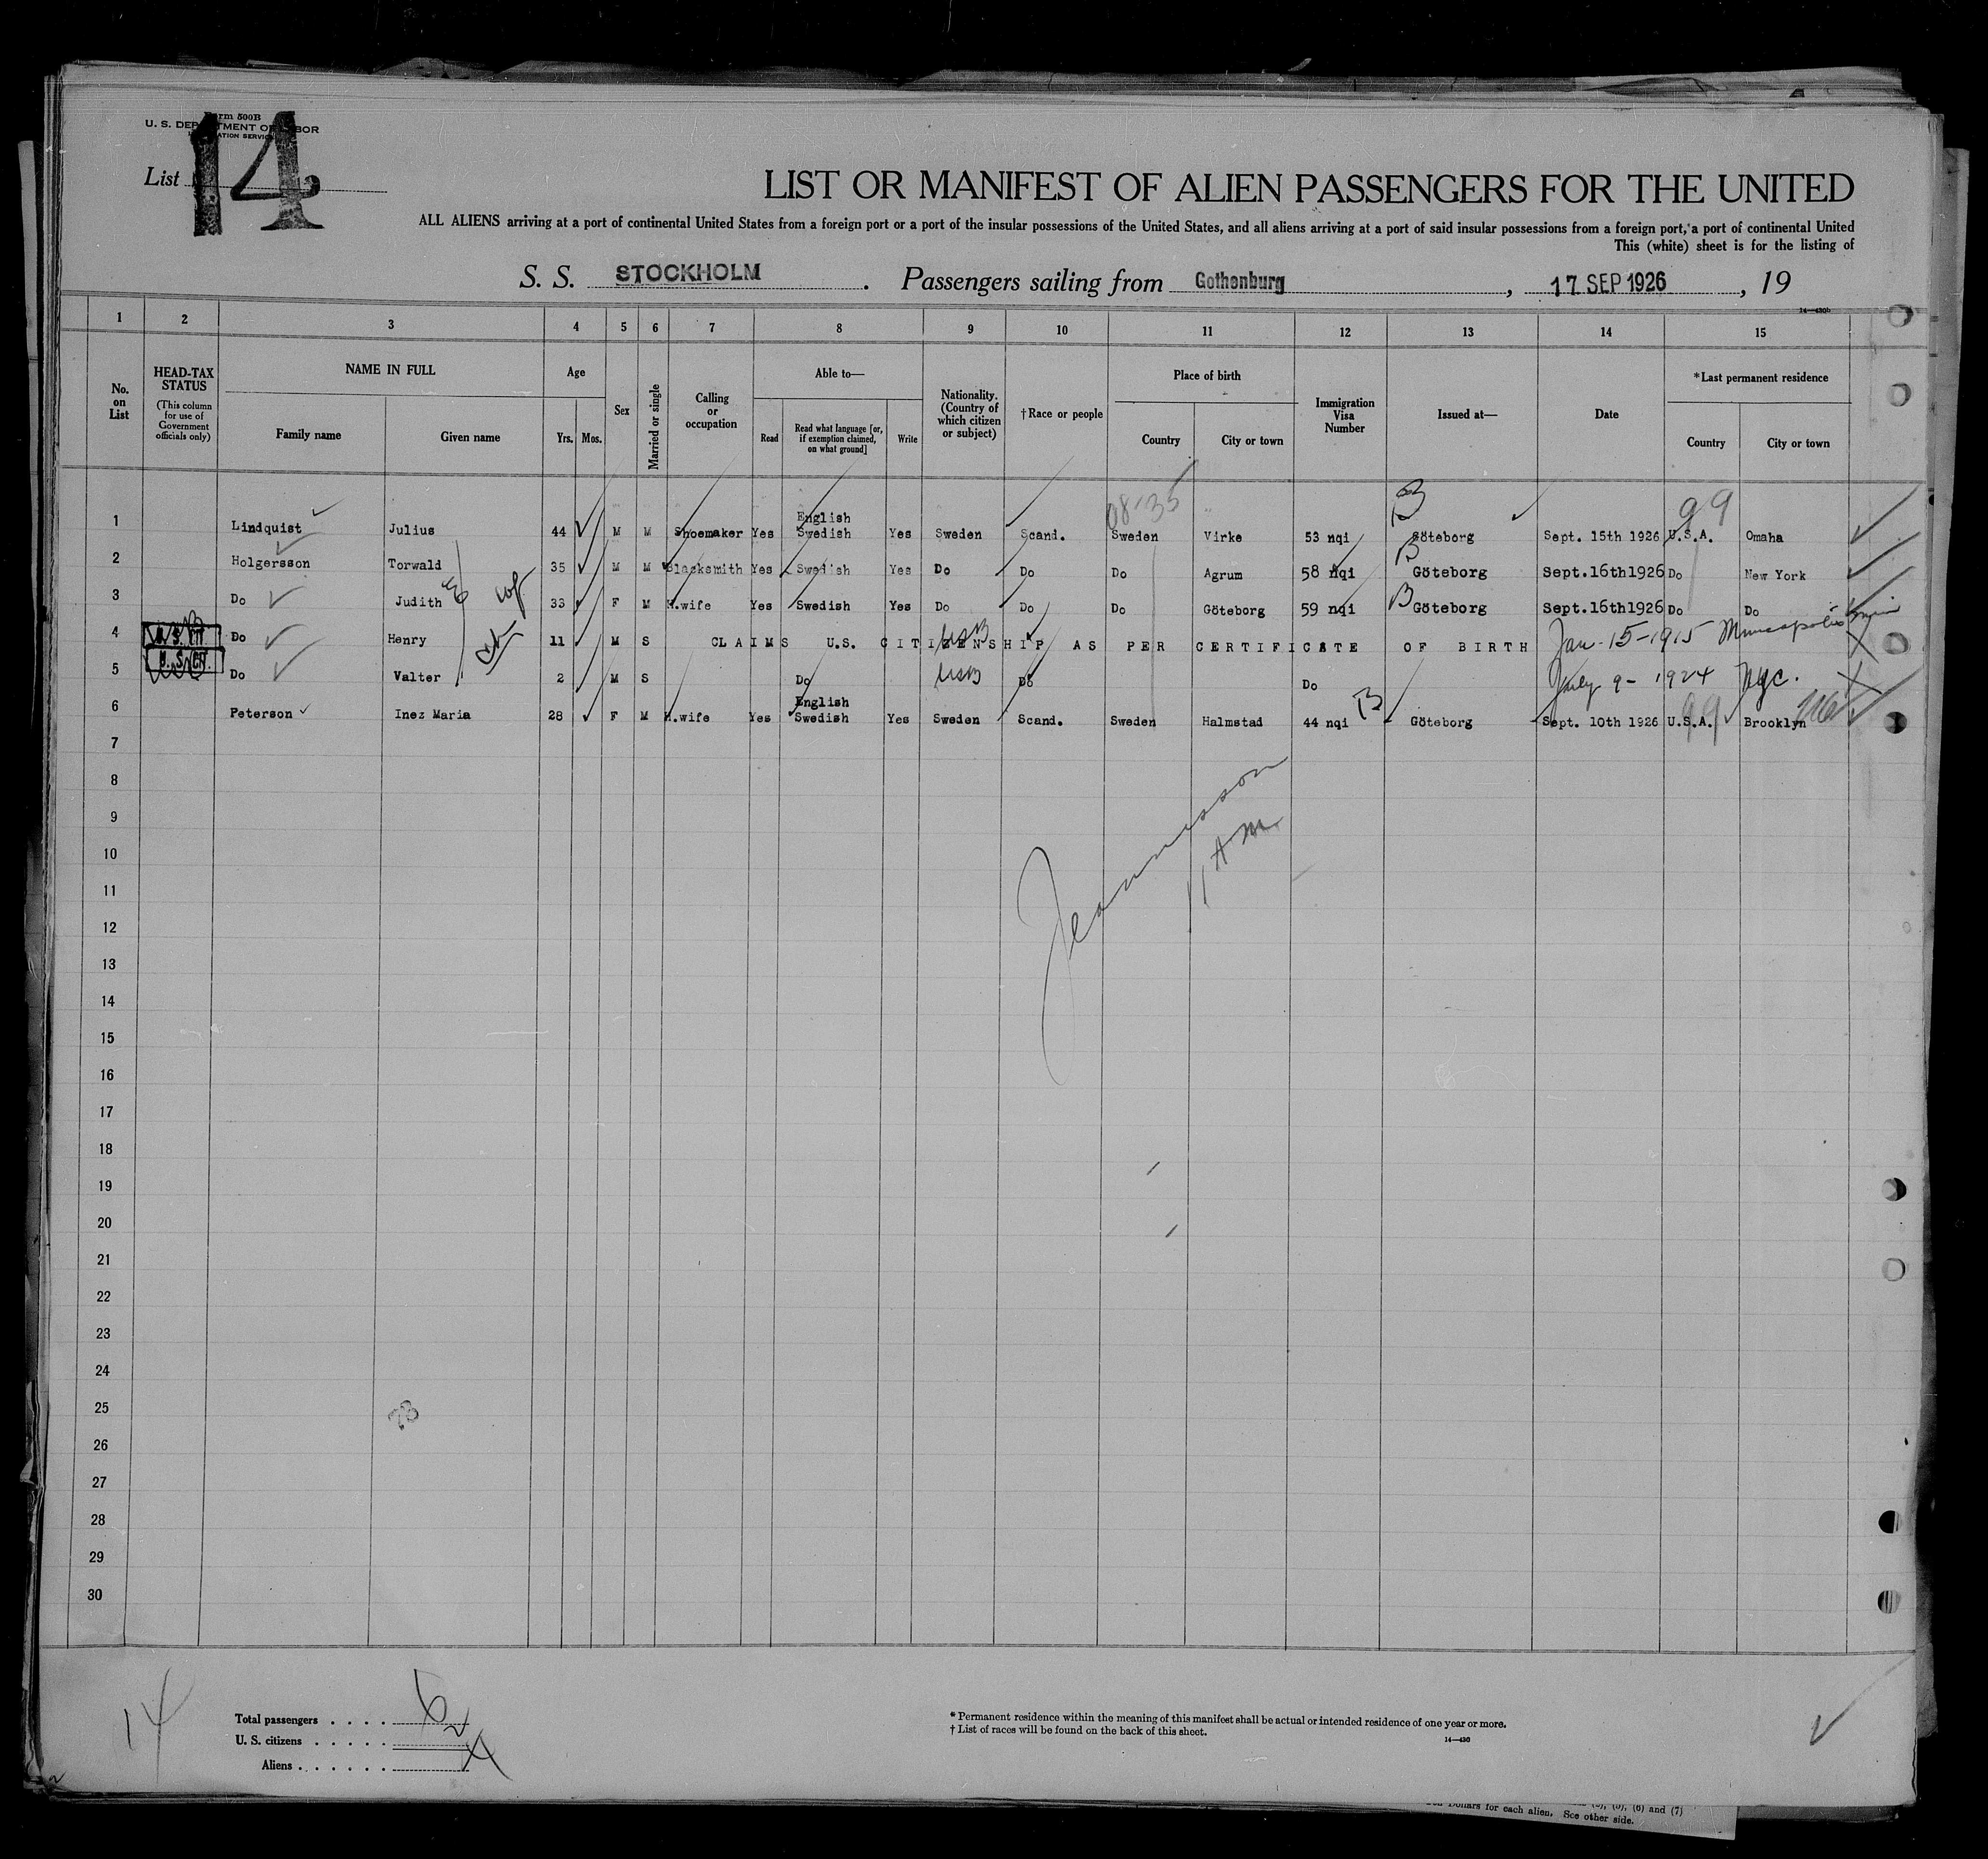 Form 500B
U. S. DEPARTMENT OF LABOR
IMMIGRATION SERVICE
List 14
LIST OR MANIFEST OF ALIEN PASSENGERS FOR THE UNITED
ALL ALIENS arriving at a port of continental United States from a foreign port or a port of the insular possessions of the United States, and all aliens arriving at a port of said insular possessions from a foreign port, a port of continental United
This (white) sheet is for the listing of
S. S. STOCKHOLM. Passengers sailing from Gothenburg, 17 SEP 1926, 19
14—430b
1 2 3 4 5 6 7 8 9 10 11 12 13 14 15
HEAD-TAX STATUS (This column for use of Government officials only)
NAME IN FULL
Age
Able to—
Place of birth
*Last permanent residence
No. on List
Family name Given name Yrs. Mos. Sex Married or single Calling or occupation Read Read what language [or, if exemption claimed, on what ground] Write Nationality. (Country of which citizen or subject) †Race or people Country City or town Immigration Visa Number Issued at— Date Country City or town
08-35 B 99
English
1 Lindquist Julius 44 M M Shoemaker Yes Swedish Yes Sweden Scand. Sweden Virke 53 nqi Göteborg Sept. 15th 1926 U.S.A. Omaha
2 Holgersson Torwald 35 M M Blacksmith Yes Swedish Yes Do Do Do Agrum 58 nqi B Göteborg Sept.16th1926 Do New York
3 Do Judith 33 F M H.wife Yes Swedish Yes Do Do Do Göteborg 59 nqi B Göteborg Sept.16th1926 Do Do
4 U. S. CIT. Do Henry 11 M S CLAIMS U.S. CITIZENSHIP AS PER CERTIFICATE OF BIRTH USB Jan-15-1915 Minneapolis Minn
5 U. S. CIT. Do Valter 2 M S Do USB Do Do July 9-1924 NYC.
English
6 Peterson Inez Maria 28 F M H.wife Yes Swedish Yes Sweden Scand. Sweden Halmstad 44 nqi B Göteborg Sept. 10th 1926 U.S.A. 99 Brooklyn
7
8
9
10
11
12
13
14
15
16
17
18
19
20
21
22
23
24
25
26
27
28
29
30
11 AM
14
Total passengers . . . . 6
U. S. citizens . . . . . 2
Aliens . . . . . . 4
* Permanent residence within the meaning of this manifest shall be actual or intended residence of one year or more.
† List of races will be found on the back of this sheet.
14—430
(5), (6) and (7)
Dollars for each alien. See other side.